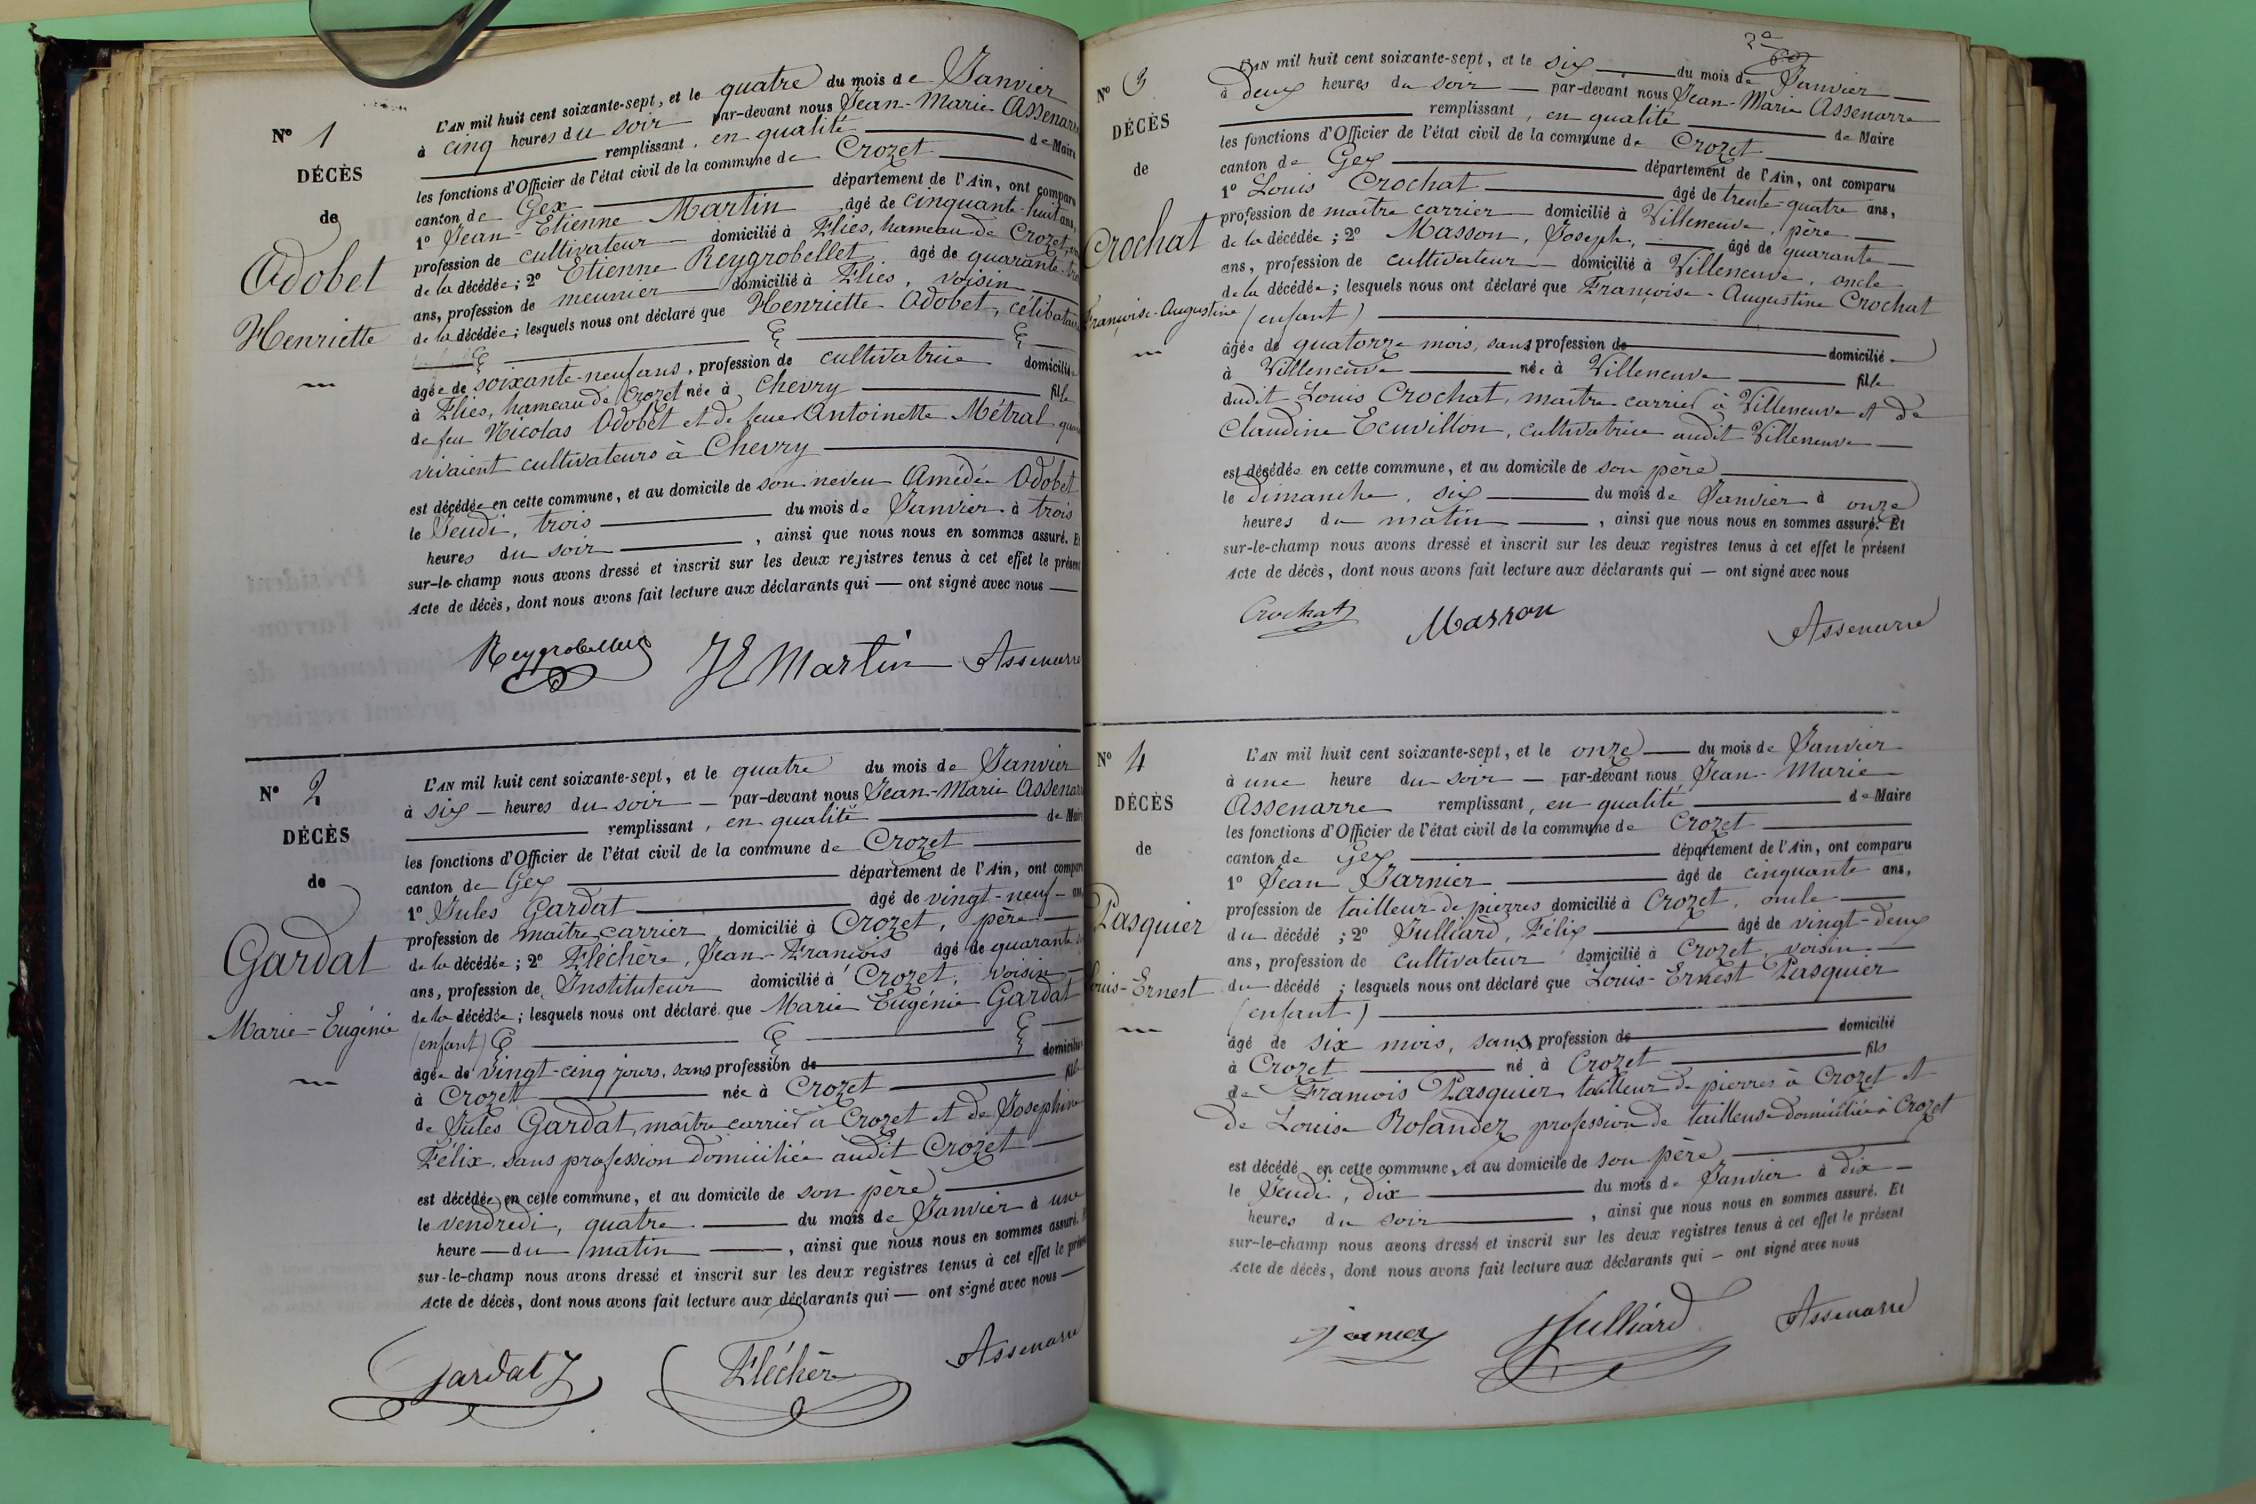 N° 1
DÉCÈS
de
Odobet
Henriette
L'AN mil huit cent soixante-sept, et le quatre du mois de Janvier
à cinq heures du soir par-devant nous Jean-Marie Assenarre
remplissant, en qualité de Maire
les fonctions d'Officier de l'état civil de la commune de Crozet
canton de Gex département de l'Ain, ont comparu
1° Jean-Etienne Martin âgé de cinquante-huit ans,
profession de cultivateur domicilié à Flies, hameau de Crozet,
de la décédée; 2° Etienne Reygrobellet âgé de quarante-
ans, profession de meunier domicilié à Flies, voisin
de la décédée; lesquels nous ont déclaré que Henriette Odobet, célibataire
âgée de soixante-neuf ans, profession de cultivatrice domiciliée
à Flies, hameau de Crozet née à Chevry fille
de feu Nicolas Odobet et de feue Antoinette Métral qui
vivaient cultivateurs à Chevry
est décédée en cette commune, et au domicile de son neveu Amédée Odobet
le Jeudi, trois du mois de Janvier à trois
heures du soir, ainsi que nous nous en sommes assuré. Et
sur-le-champ nous avons dressé et inscrit sur les deux registres tenus à cet effet le présent
Acte de décès, dont nous avons fait lecture aux déclarants qui — ont signé avec nous —
Reygrobellet JE Martin Assenarre
N° 2
DÉCÈS
de
Gardat
Marie-Eugénie
L'AN mil huit cent soixante-sept, et le quatre du mois de Janvier
à six — heures du soir — par-devant nous Jean-Marie Assenarre
remplissant, en qualité de Maire
les fonctions d'Officier de l'état civil de la commune de Crozet
canton de Gex département de l'Ain, ont comparu
1° Jules Gardat âgé de vingt-neuf — ans
profession de maître carrier domicilié à Crozet, père
de la décédée; 2° Fléchère, Jean-François âgé de quarante
ans, profession de Instituteur domicilié à Crozet, voisin
de la décédée; lesquels nous ont déclaré que Marie Eugénie Gardat
(enfant)
âgée de vingt-cinq jours, sans profession de domiciliée
à Crozet née à Crozet fille
de Jules Gardat, maître carrier à Crozet et de Joséphine
Félix, sans profession domiciliée audit Crozet
est décédée en cette commune, et au domicile de son père
le vendredi, quatre du mois de Janvier à une
heure — du matin, ainsi que nous nous en sommes assuré. Et
sur-le-champ nous avons dressé et inscrit sur les deux registres tenus à cet effet le présent
Acte de décès, dont nous avons fait lecture aux déclarants qui — ont signé avec nous —
Gardat J Fléchère Assenarre
2e
N° 3
DÉCÈS
de
Crochat
Françoise-Augustine
L'AN mil huit cent soixante-sept, et le six du mois de Janvier
à deux heures du soir — par-devant nous Jean-Marie Assenarre
remplissant, en qualité de Maire
les fonctions d'Officier de l'état civil de la commune de Crozet
canton de Gex département de l'Ain, ont comparu
1° Louis Crochat âgé de trente-quatre ans,
profession de maître carrier domicilié à Villeneuve, père
de la décédée; 2° Masson, Joseph, âgé de quarante
ans, profession de cultivateur domicilié à Villeneuve, oncle
de la décédée; lesquels nous ont déclaré que Françoise-Augustine Crochat
(enfant)
âgée de quatorze mois, sans profession de domiciliée
à Villeneuve née à Villeneuve fille
dudit Louis Crochat, maître carrier à Villeneuve et de
Claudine Ecuvillon, cultivatrice audit Villeneuve
est décédée en cette commune, et au domicile de son père
le dimanche, six du mois de Janvier à onze
heures du matin, ainsi que nous nous en sommes assuré. Et
sur-le-champ nous avons dressé et inscrit sur les deux registres tenus à cet effet le présent
Acte de décès, dont nous avons fait lecture aux déclarants qui — ont signé avec nous
Crochat Masson Assenarre
N° 4
DÉCÈS
de
Pasquier
Louis-Ernest
L'AN mil huit cent soixante-sept, et le onze du mois de Janvier
à une heure du soir — par-devant nous Jean-Marie
Assenarre remplissant, en qualité de Maire
les fonctions d'Officier de l'état civil de la commune de Crozet
canton de Gex département de l'Ain, ont comparu
1° Jean Jarnier âgé de cinquante ans,
profession de tailleur de pierres domicilié à Crozet, oncle
du décédé; 2° Julliard, Félix âgé de vingt-deux
ans, profession de cultivateur domicilié à Crozet, voisin
du décédé; lesquels nous ont déclaré que Louis-Ernest Pasquier
(enfant)
âgé de six mois, sans profession de domicilié
à Crozet né à Crozet fils
de François Pasquier tailleur de pierres à Crozet et
de Louise Rolandez profession de tailleuse domiciliée à Crozet
est décédé en cette commune, et au domicile de son père
le Jeudi, dix du mois de Janvier à dix
heures du soir, ainsi que nous nous en sommes assuré. Et
sur-le-champ nous avons dressé et inscrit sur les deux registres tenus à cet effet le présent
Acte de décès, dont nous avons fait lecture aux déclarants qui — ont signé avec nous
Jarnier Julliard Assenarre